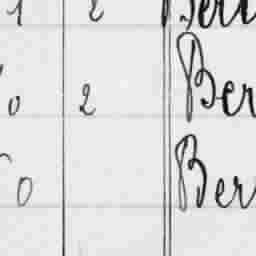 1 2 Ber
0 2 Ber
0 Ber